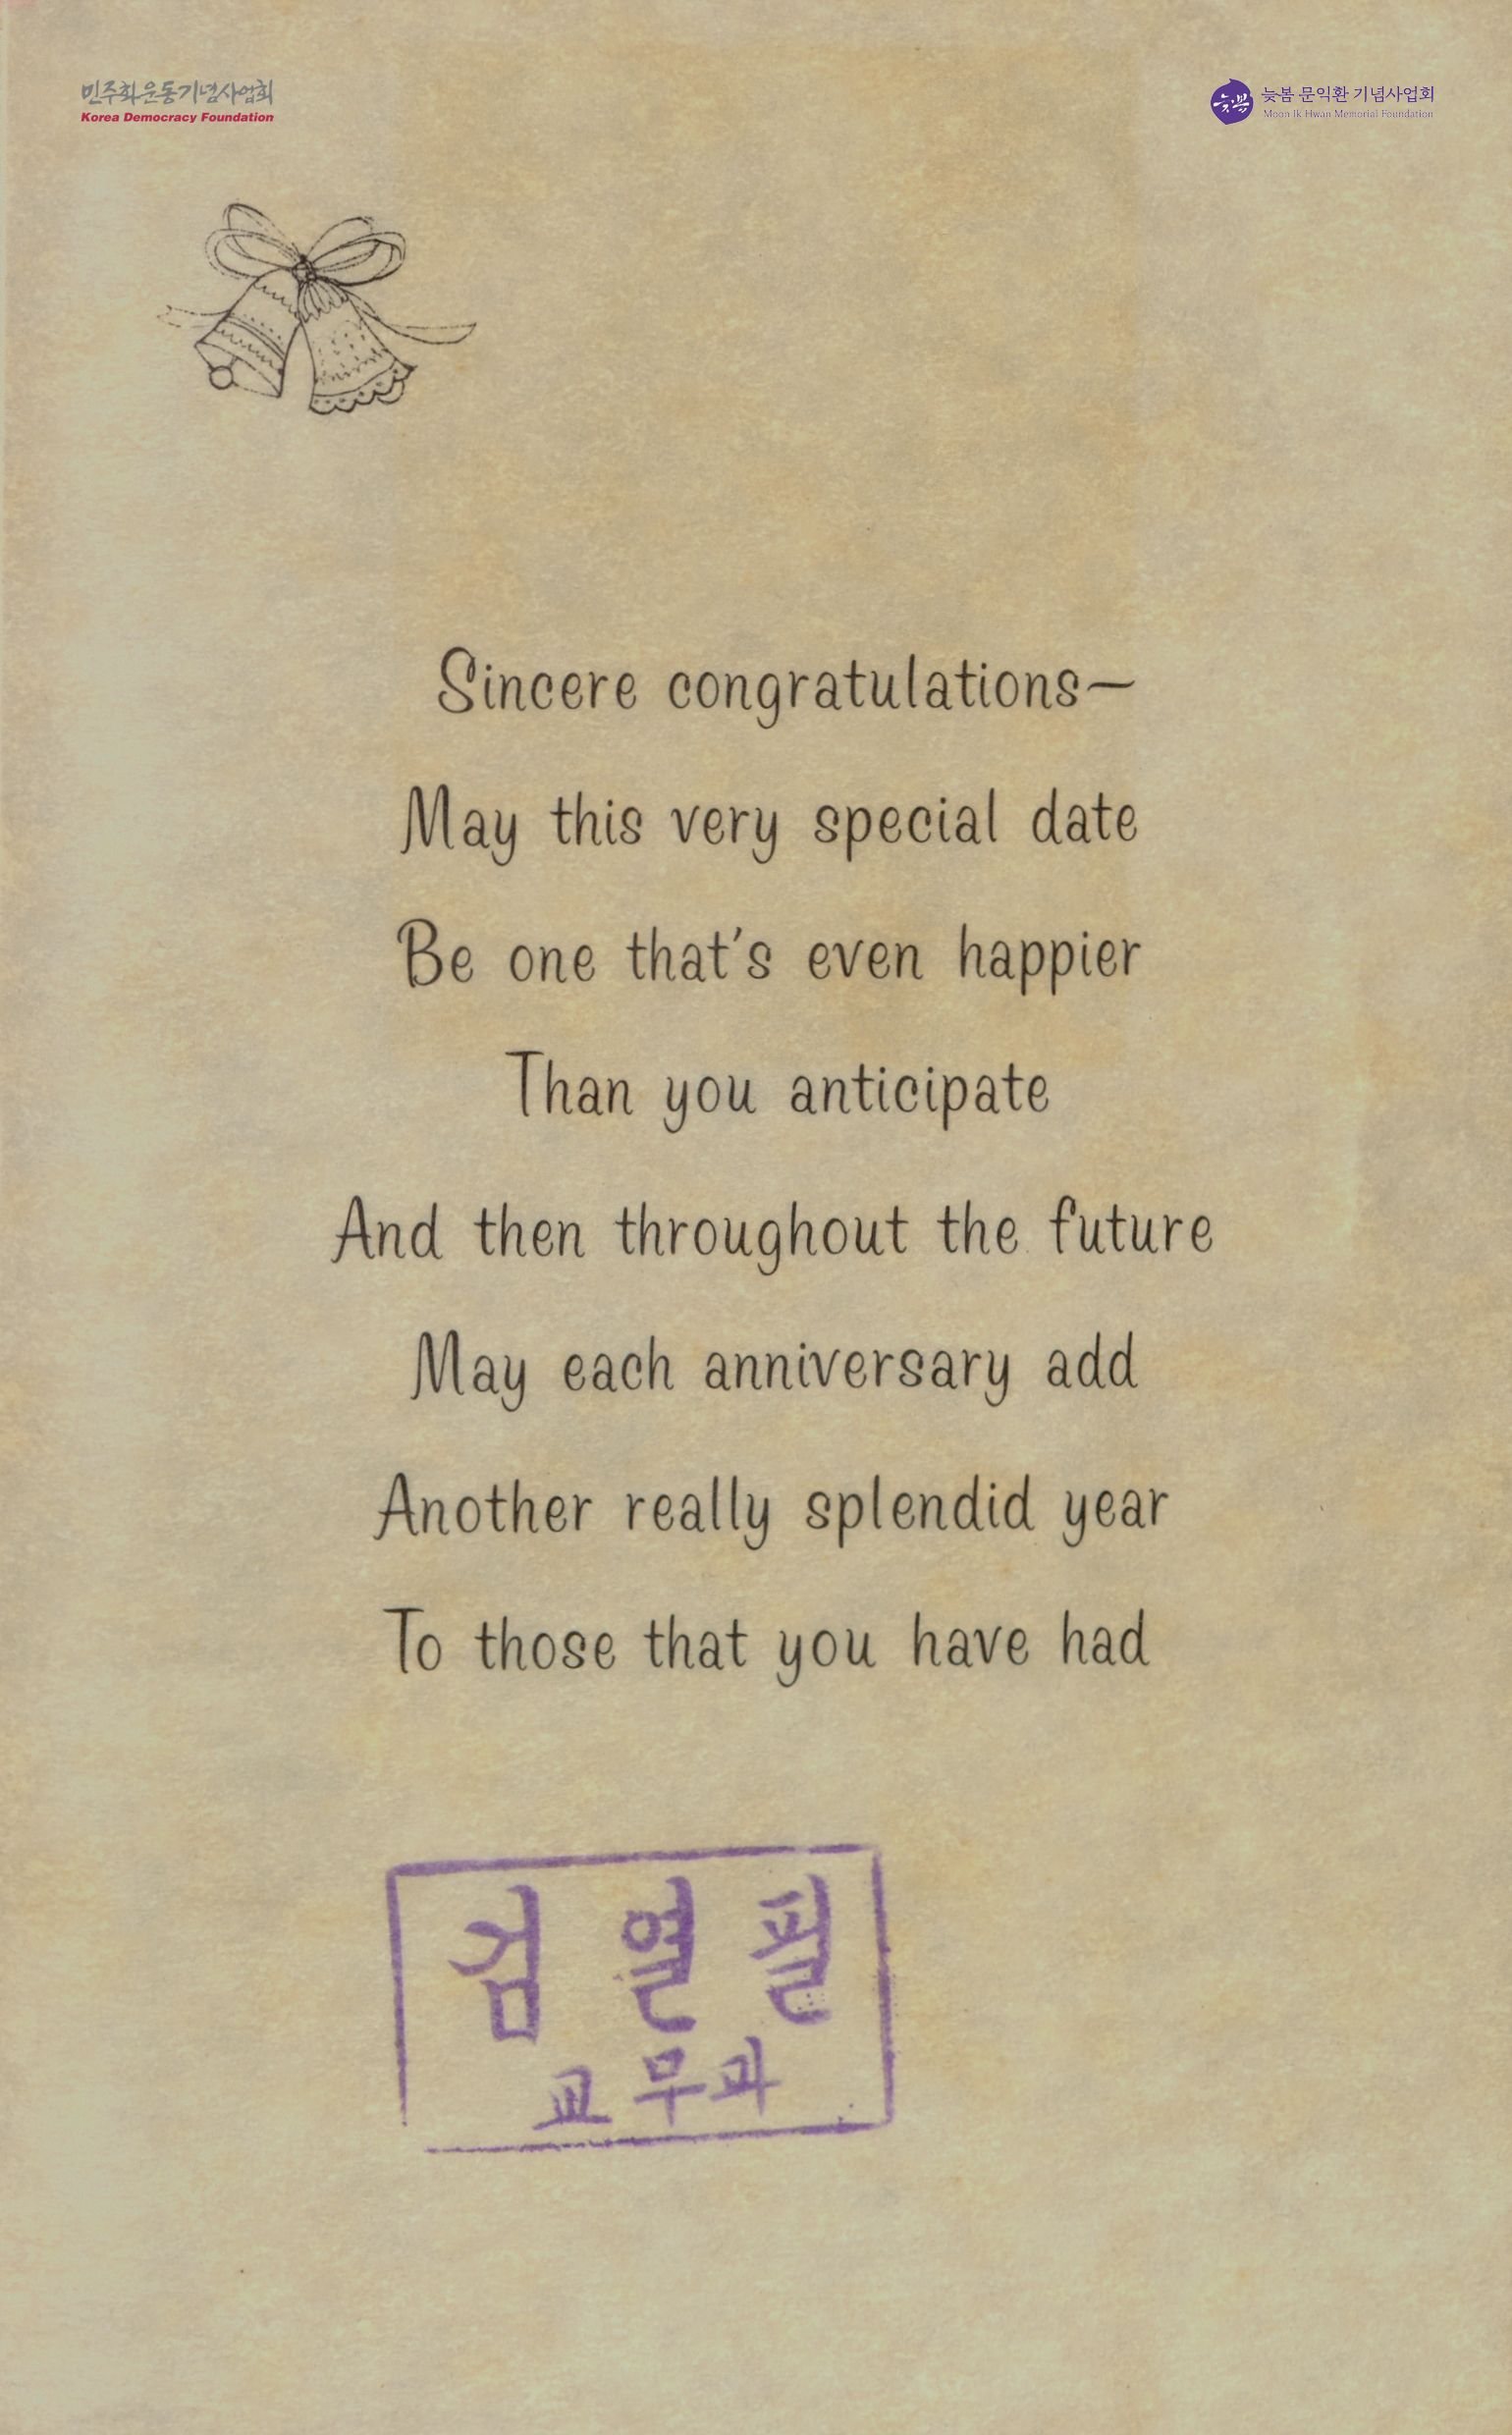 민주화운동기념사업회
Korea Democracy Foundation
늦봄
늦봄 문익환 기념사업회
Moon Ik Hwan Memorial Foundation
Sincere congratulations—
May this very special date
Be one that's even happier
Than you anticipate
And then throughout the future
May each anniversary add
Another really splendid year
To those that you have had
검열필
교무과